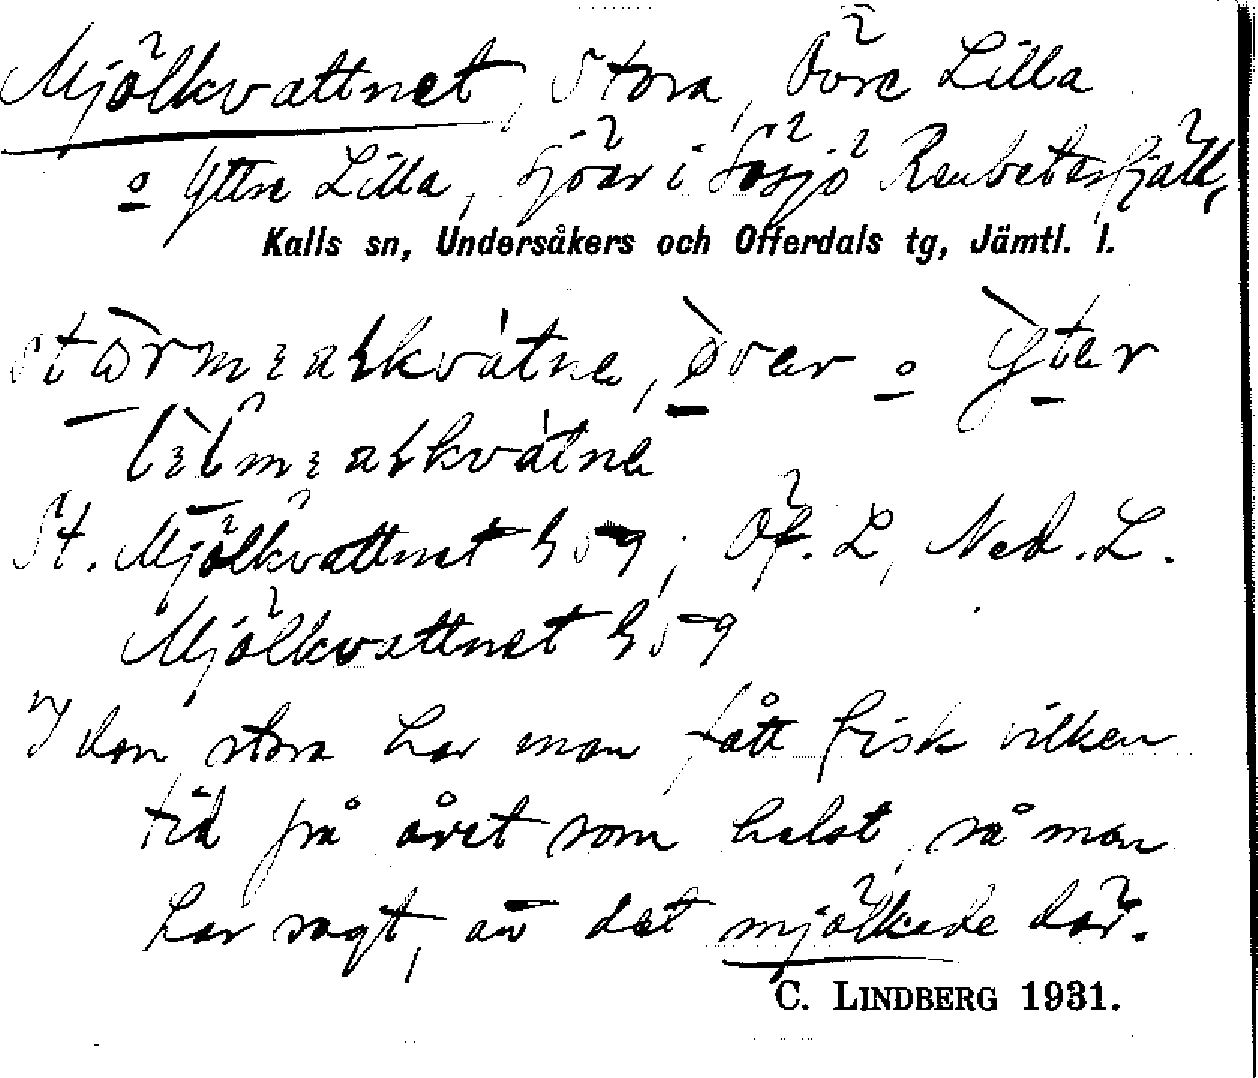 Mjölkvattnet, Stora, Övre Lilla
o Yttre Lilla, sjöar i Sösjö Renbetesfjäll,
Kalls sn, Undersåkers och Offerdals tg, Jämtl. l.
över o
St. Mjölkvattnet G 59; Öf. L, Ned. L.
Mjölkvattnet G 59
I den stora har man fått fisk vilken
tid på året som helst, så man
har sagt, att det mjölkede där.
C. LINDBERG 1931.